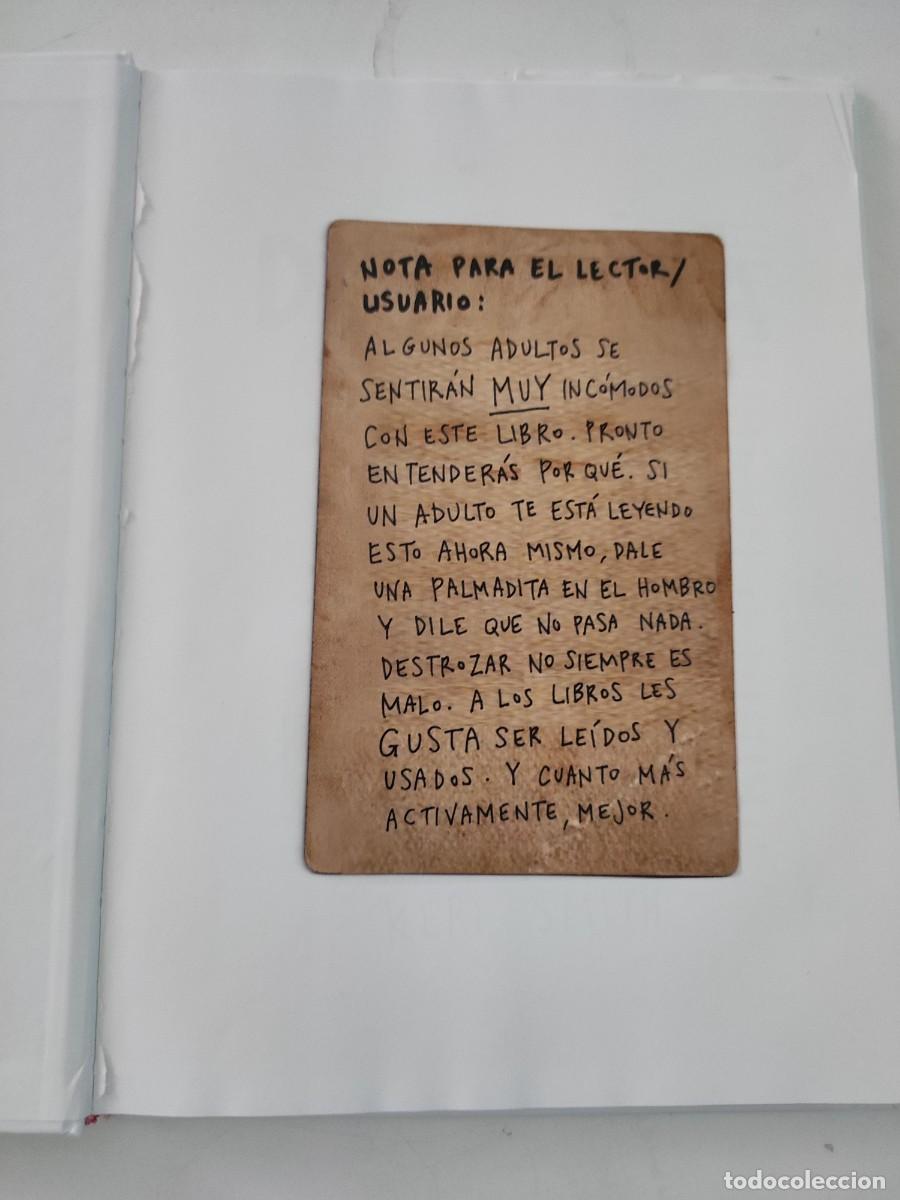 NOTA PARA EL LECTOR/
USUARIO:
ALGUNOS ADULTOS SE
SENTIRÁN MUY INCÓMODOS
CON ESTE LIBRO. PRONTO
ENTENDERÁS POR QUÉ. SI
UN ADULTO TE ESTÁ LEYENDO
ESTO AHORA MISMO, DALE
UNA PALMADITA EN EL HOMBRO
Y DILE QUE NO PASA NADA.
DESTROZAR NO SIEMPRE ES
MALO. A LOS LIBROS LES
GUSTA SER LEÍDOS Y
USADOS. Y CUANTO MÁS
ACTIVAMENTE, MEJOR.
todocoleccion